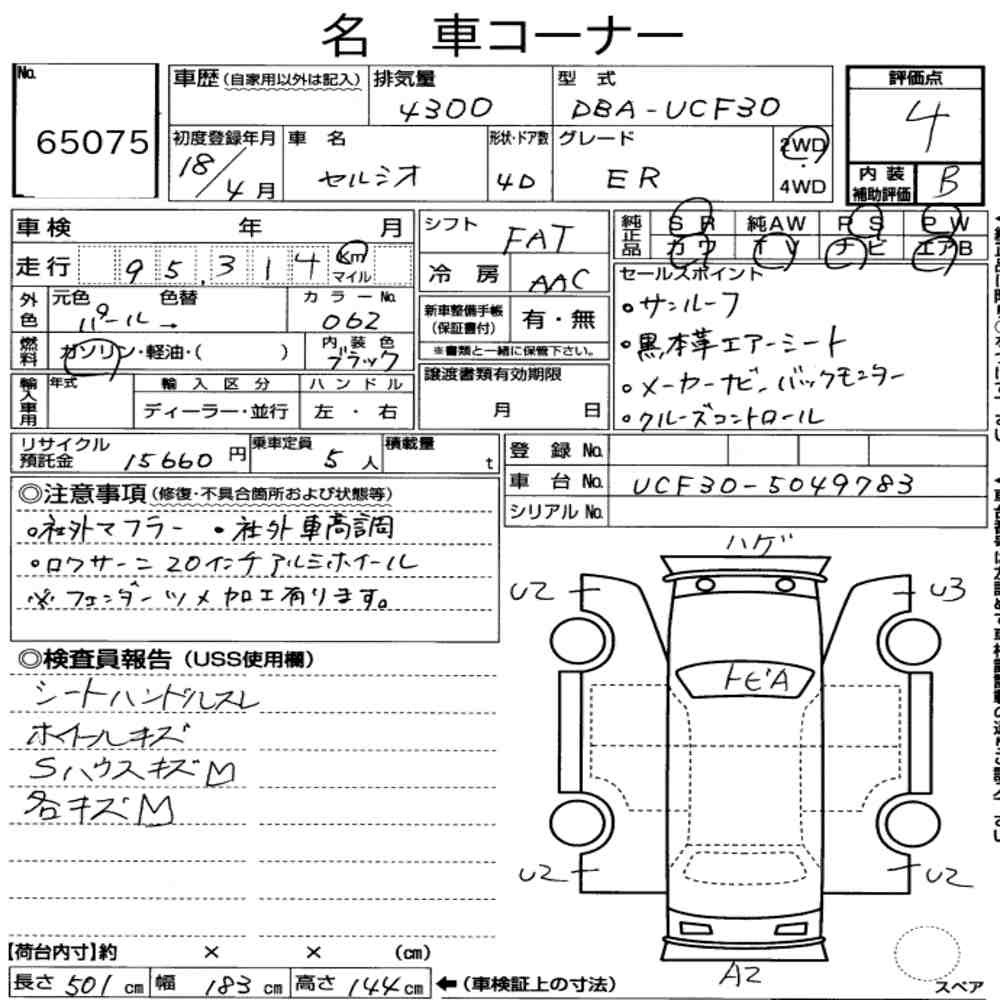 名 車コーナー
No.
65075
車歴 (自家用以外は記入)
排気量
4300
型 式
DBA-UCF30
評価点
4
初度登録年月
18/4月
車 名
セルシオ
形状・ドア数
4D
グレード
ER
2WD
・
4WD
内 装
補助評価
B
車検 年 月
走行 95,314 Km
マイル
シフト
FAT
冷 房
AAC
純正品
S R 純AW P S P W
カワ T V ナビ エアB
外色
元色 色替
パール→
カラーNo.
062
燃料
ガソリン・軽油・( )
内 装 色
ブラック
新車整備手帳
(保証書付)
有・無
※書類と一緒に保管下さい。
セールスポイント
・サンルーフ
・黒本革エアーシート
・メーカーナビ、バックモニター
・クルーズコントロール
輸入車用
年式
輸 入 区 分
ディーラー・並行
ハ ン ド ル
左 ・ 右
譲渡書類有効期限
月 日
リサイクル
預託金
15660円
乗車定員
5人
積載量
t
登 録 No.
車 台 No.
UCF30-5049783
シリアルNo.
◎注意事項(修復・不具合箇所および状態等)
・社外マフラー ・社外車高調
・ロクサーニ20インチアルミホイール
※フェンダーツメ加工有ります。
◎検査員報告(USS使用欄)
シートハンドルスレ
ホイールキズ
Sハウスキズ M
各キズM
ハゲ
U2
U3
トビA
U2
U2
A2
スペア
【荷台内寸】約 × × (cm)
長さ 501 cm 幅 183 cm 高さ 144 cm ←(車検証上の寸法)